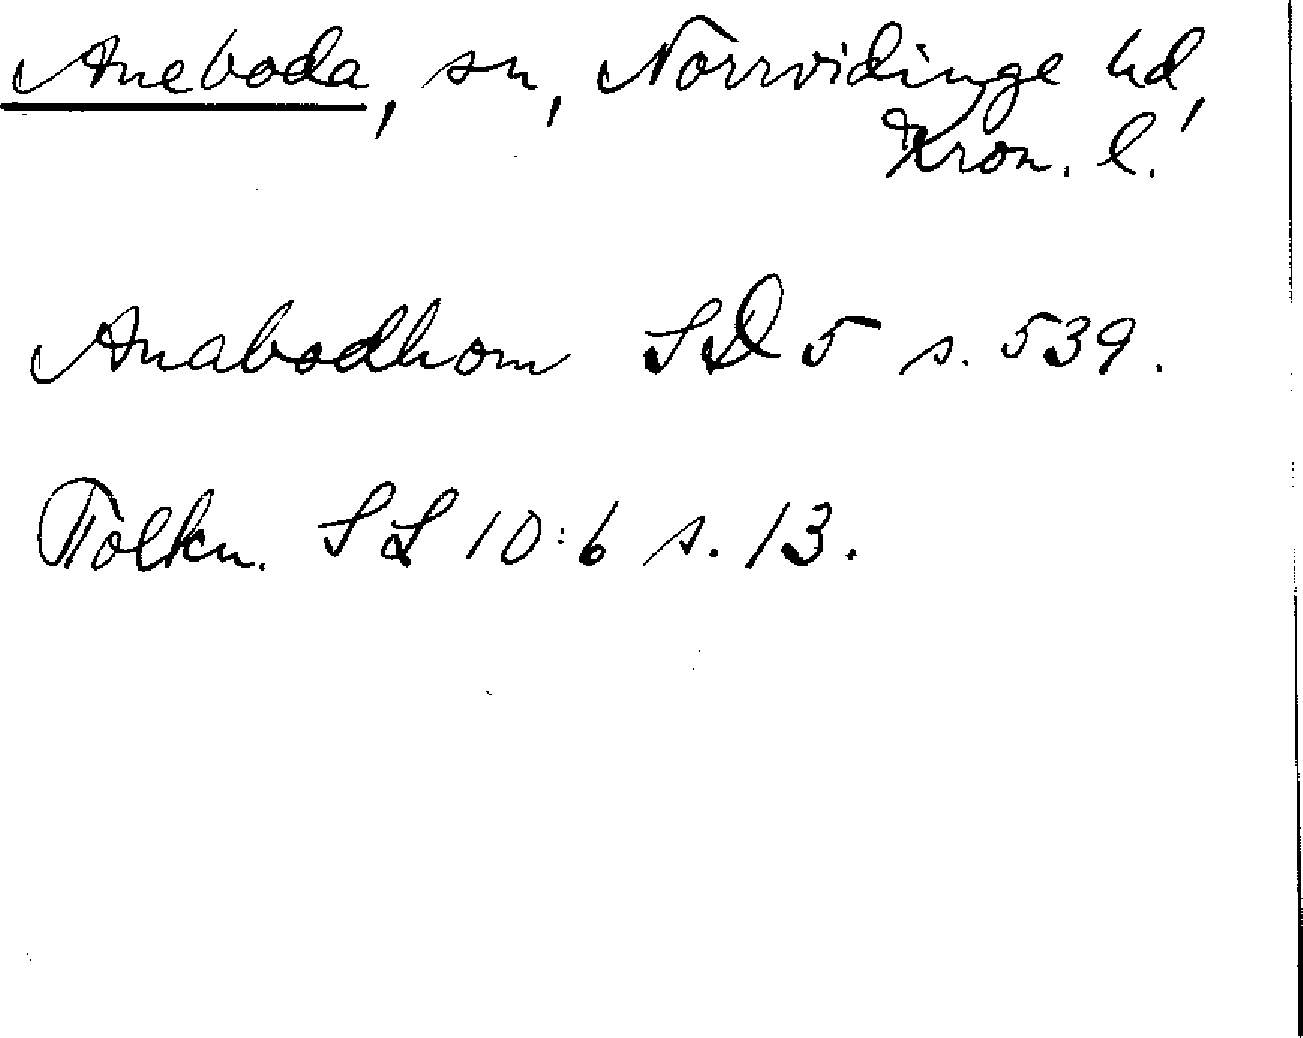 Aneboda, sn, Norrvidinge hd,
Kron. l.
Anabodhom SD 5 s. 539.
Tolkn. SL 10:6 s. 13.